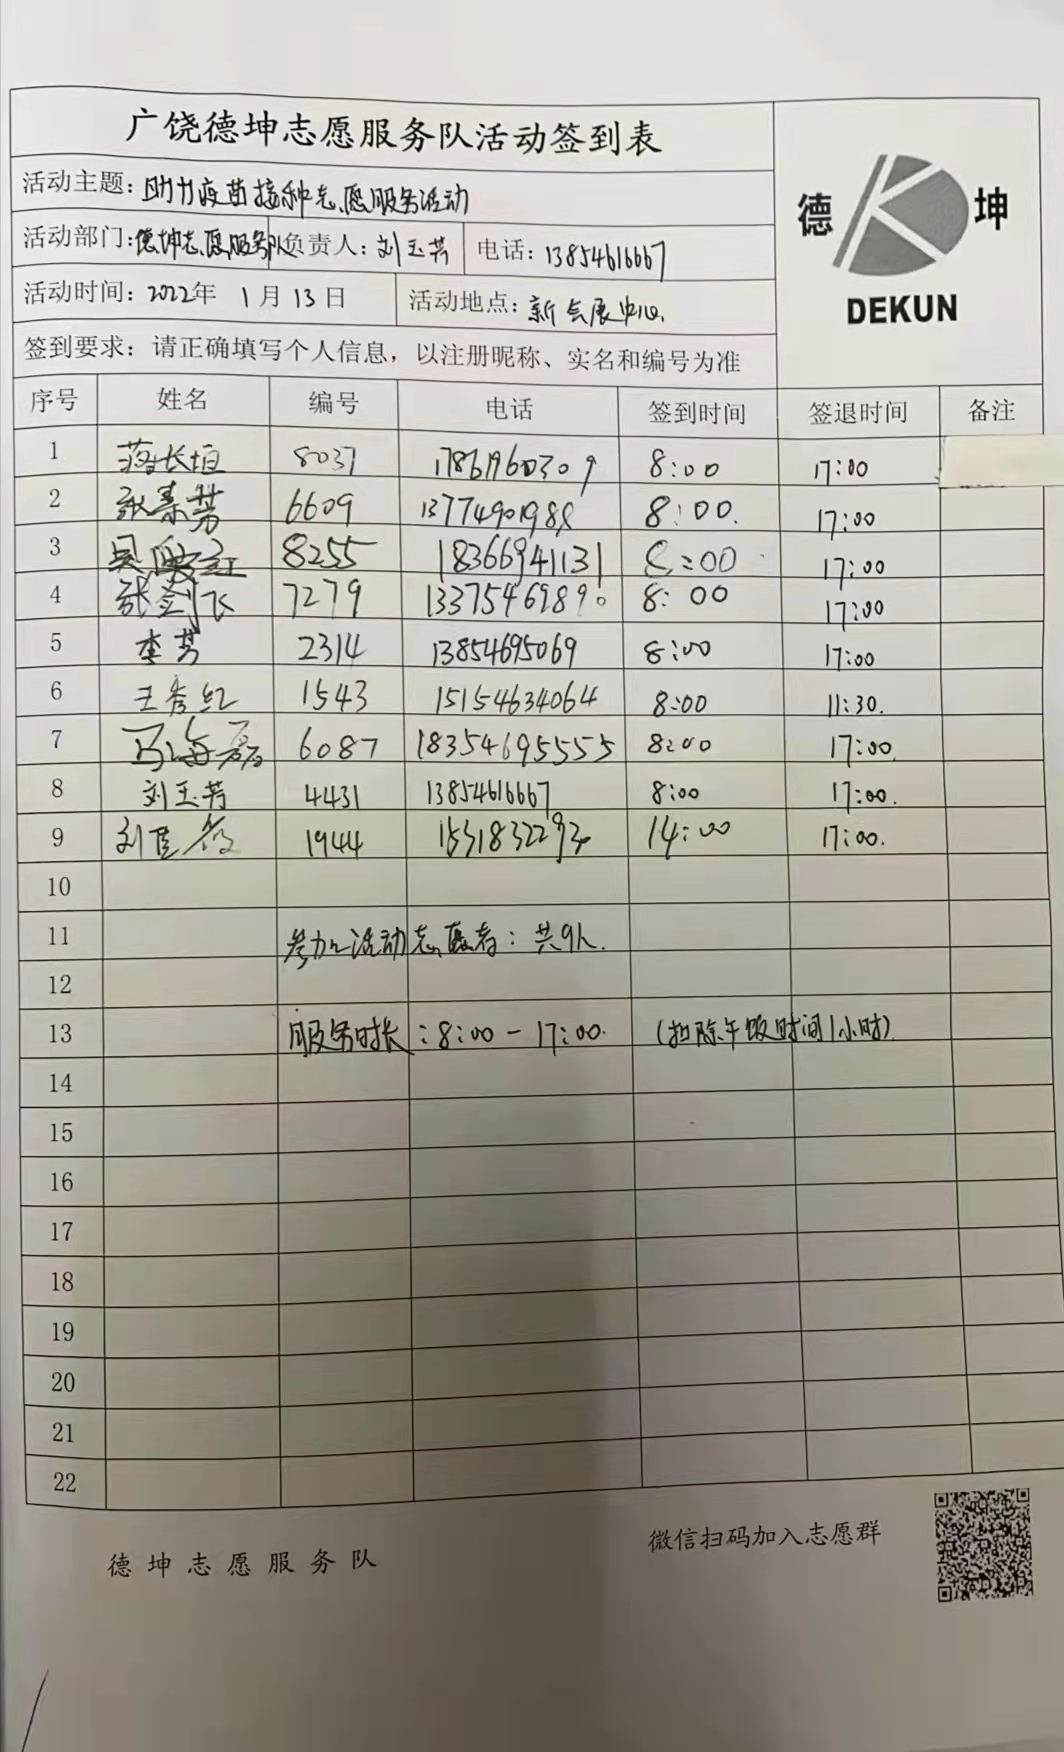 广饶德坤志愿服务队活动签到表
德 坤
DEKUN
活动主题：助力疫苗接种志愿服务活动
活动部门：德坤志愿服务队 负责人：刘玉芳 电话：13854616667
活动时间：2022年 1月13日 活动地点：新会展中心
签到要求：请正确填写个人信息，以注册昵称、实名和编号为准
序号 姓名 编号 电话 签到时间 签退时间 备注
1 蒋长垣 8037 17861960309 8:00 17:00
2 6609 8:00. 17:00
3 8255 18366941131 8:00 17:00
4 张剑飞 7279 13375469890 8:00 17:00
5 李芳 2314 13854695069 8:00 17:00
6 王秀红 1543 15154634064 8:00 11:30.
7 马海磊 6087 18354695555 8:00 17:00
8 刘玉芳 4431 13854616667 8:00 17:00.
9 1944 14:00 17:00.
10
11 参加活动志愿者：共9人.
12
13 服务时长：8:00-17:00. (扣除午饭时间1小时)
14
15
16
17
18
19
20
21
22
德坤志愿服务队
微信扫码加入志愿群